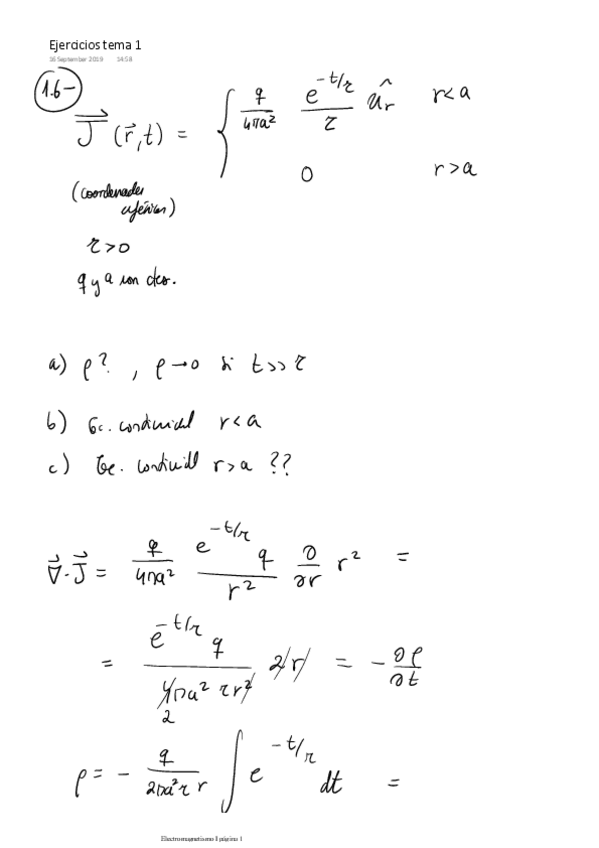 Ejercicios tema 1
16 September 2019 14:58
1.6-
J⃗ (r⃗,t) = { q/4πa² e^(-t/τ)/τ û_r r<a
0 r>a
(coordenadas esféricas)
τ>0
q y a son ctes.
a) ρ? , ρ→0 si t>>τ
b) Ec. continuidad r<a
c) Ec. continuidad r>a ??
∇⃗·J⃗ = q/4πa² e^(-t/τ) q/r² ∂/∂r r² =
= e^(-t/τ) q / 4πa² τ r² 2 r = - ∂ρ/∂t
2
ρ = - q/2πa²τ r ∫ e^(-t/τ) dt =
Electromagnetismo II página 1